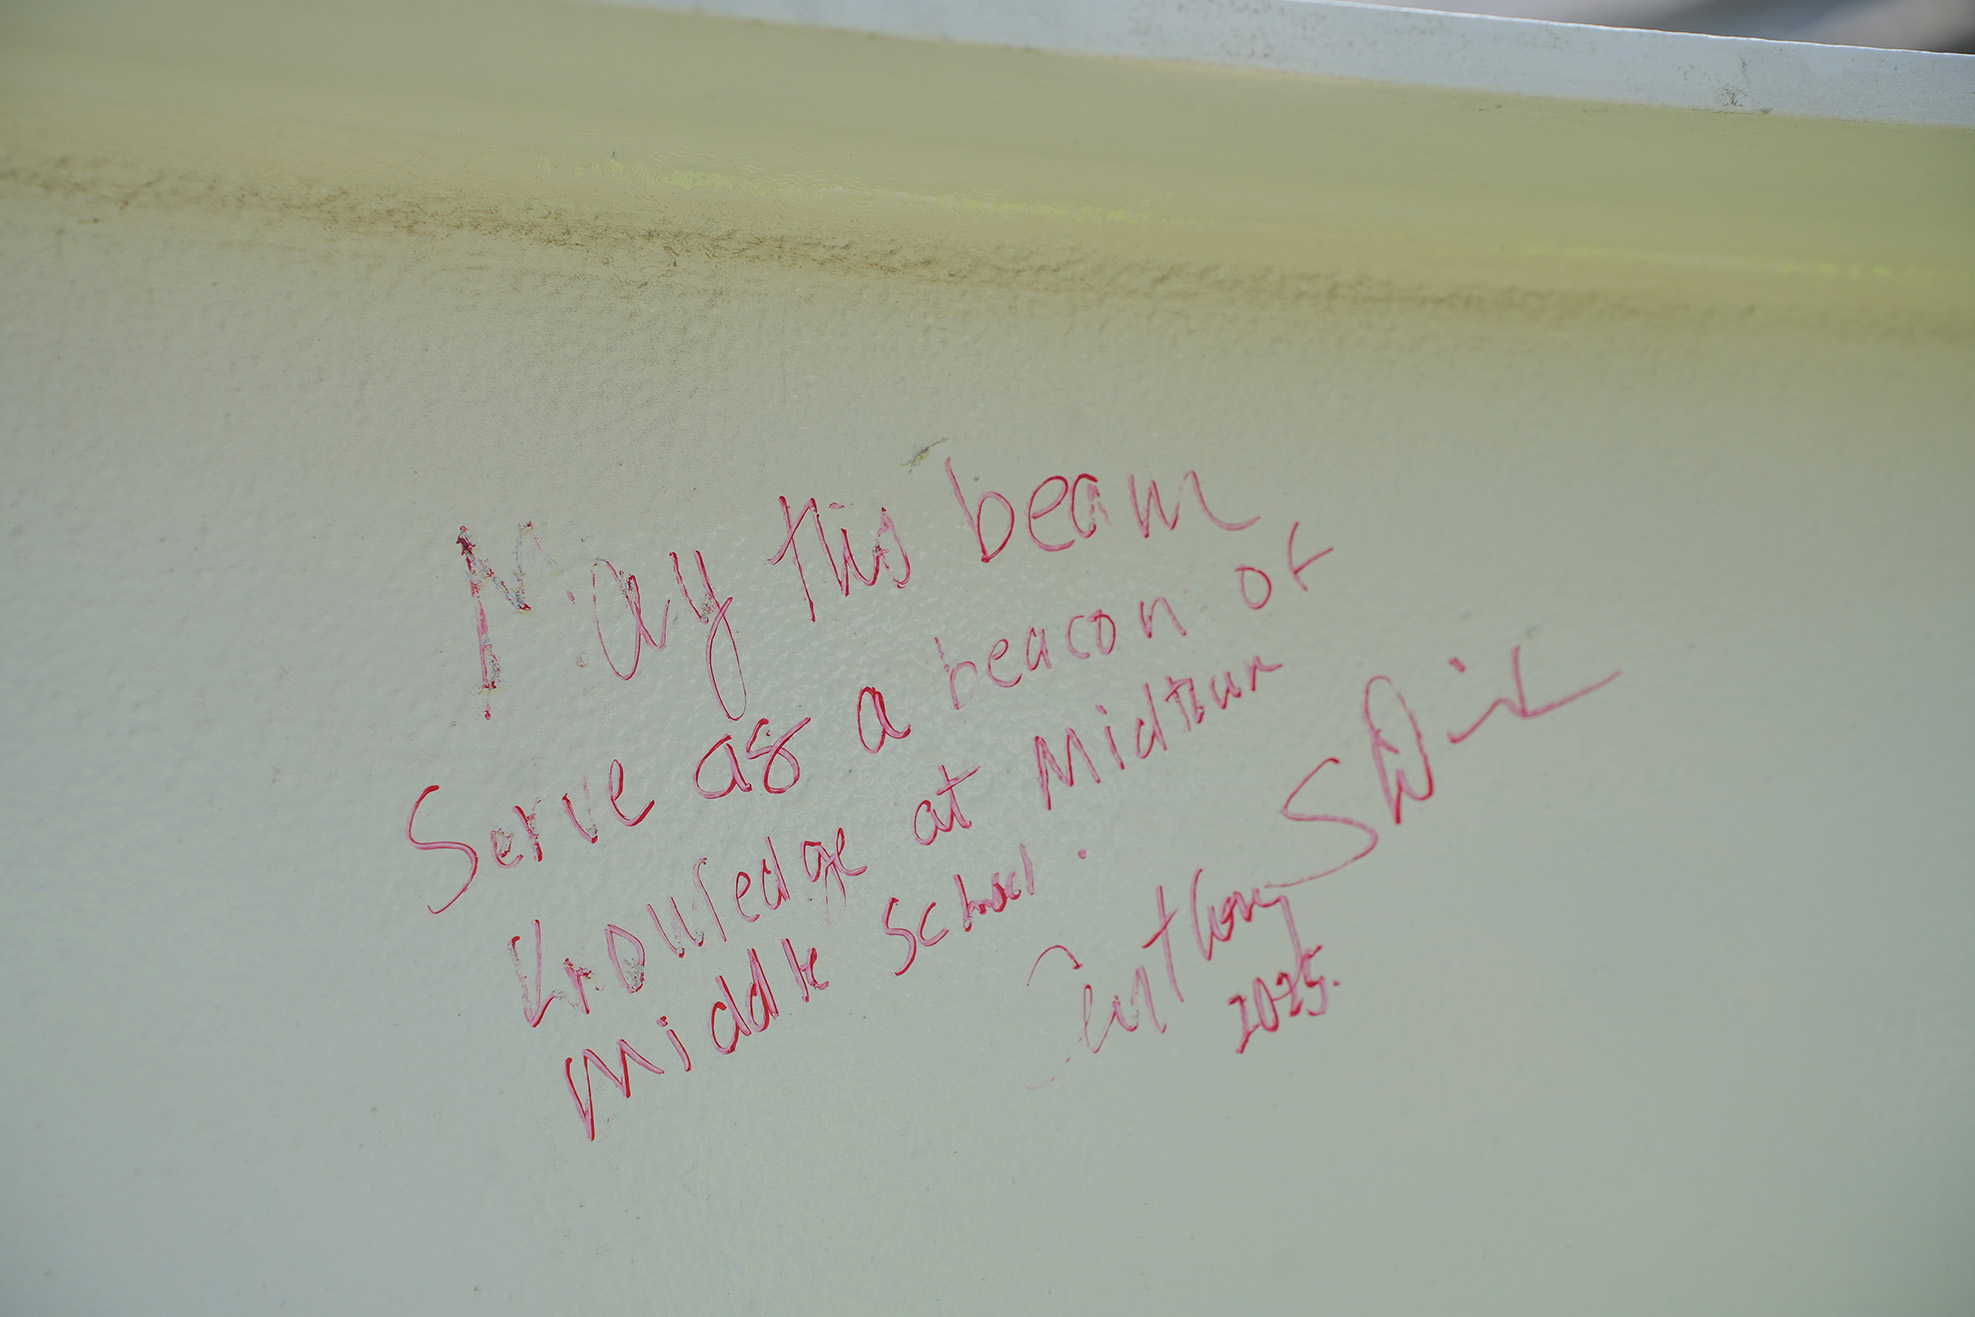 May this beam
Serve as a beacon of
knowledge at Midtown
Middle School.
Anthony S
2025.